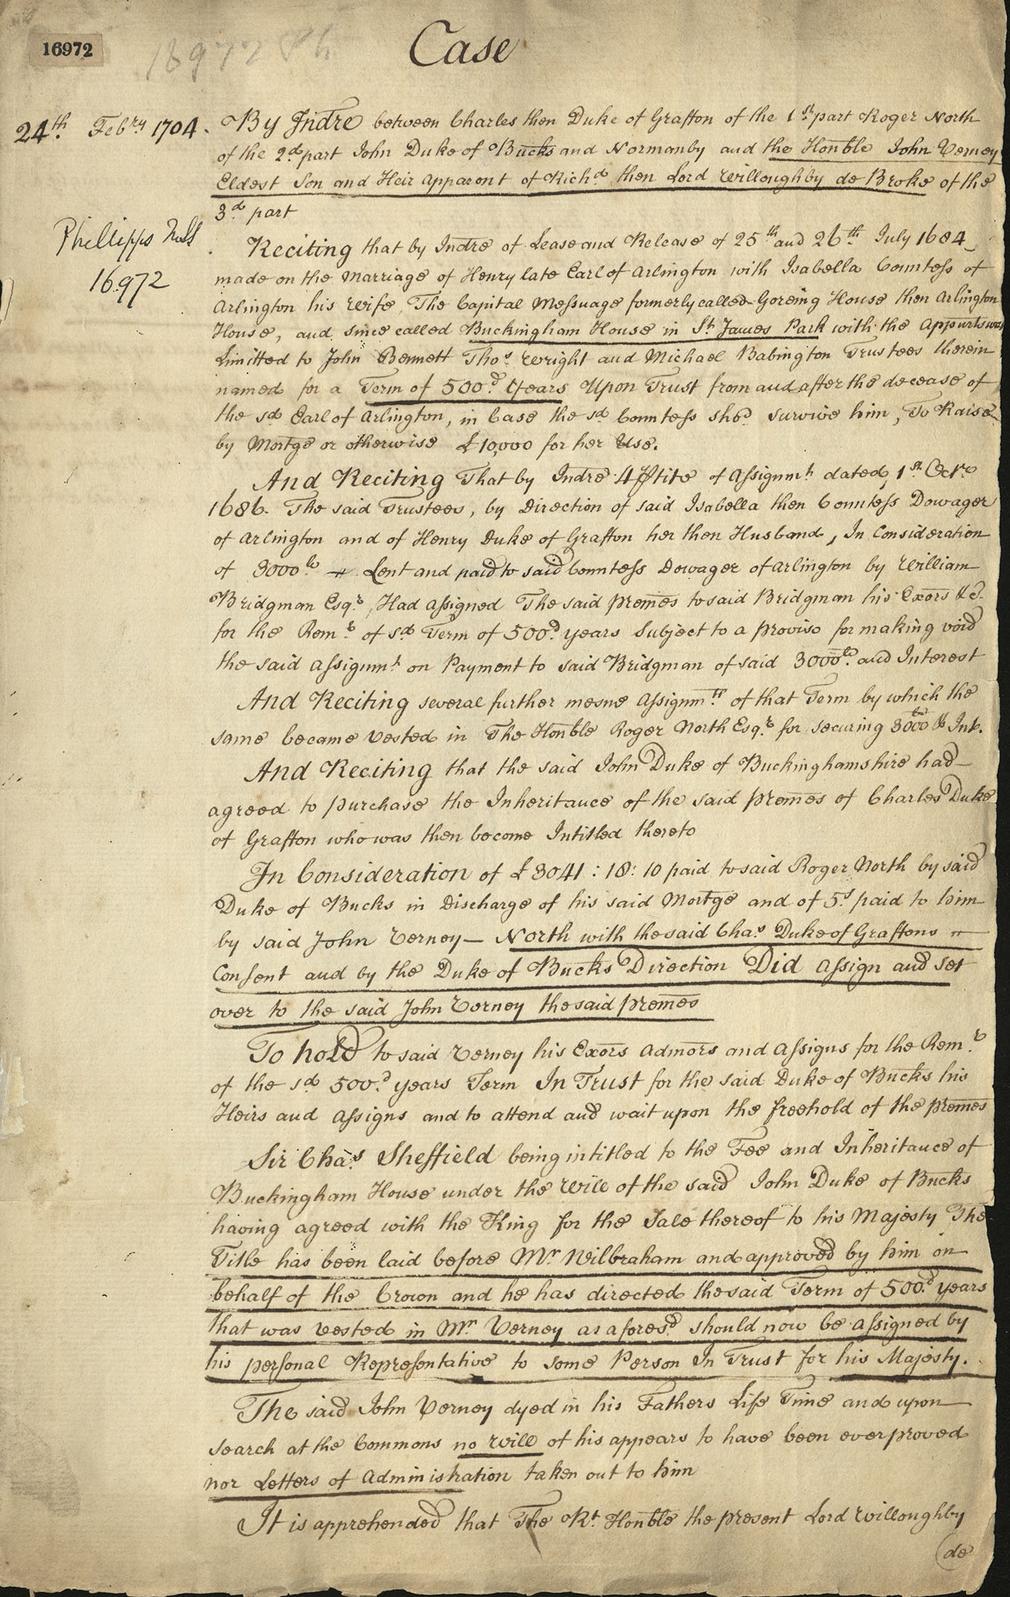 16972
16972 Ph
Case
24th Febry 1704.
By Indre between Charles then Duke of Grafton of the 1st part Roger North
of the 2d part John Duke of Bucks and Normanby and the Honble John Verney
Eldest Son and Heir Apparent of Richd then Lord Willoughby de Broke of the
3d part
Phillipps Mss
16972
Reciting that by Indre of Lease and Release of 25th and 26th July 1684
made on the Marriage of Henry late Earl of Arlington with Isabella Countess of
Arlington his Wife The Capital Messuage formerly called Goreing House then Arlington
House, and since called Buckingham House in St James Park with the Appurts was
Limitted to John Bennett Thos Wright and Michael Babington Trustees therein
named for a Term of 500d Years Upon Trust from and after the decease of
the sd Earl of Arlington, in Case the sd Countess shod survive him, To Raise
by Mortge or otherwise £10,000 for her Use.
And Reciting That by Indre 4 Ptite of Assignmt dated 1st Octr
1686. The said Trustees, by Direction of said Isabella then Countess Dowager
of Arlington and of Henry Duke of Grafton her then Husband, In Consideration
of 3000ls Lent and paid to said Countess Dowager of Arlington by William
Bridgman Esqr, Had Assigned The said premes to said Bridgman his Exors &c.
for the Remr of sd Term of 500d years Subject to a proviso for making void
the said Assignmt on Payment to said Bridgman of said 3000ls and Interest
And Reciting several further mesne Assignmts of that Term by which the
same became vested in The Honble Roger North Esqr for securing 3000ls & Int.
And Reciting that the said John Duke of Buckinghamshire had
agreed to purchase the Inheritance of the said premes of Charles Duke
of Grafton who was then become Intitled thereto
In Consideration of £3041 : 18 : 10 paid to said Roger North by said
Duke of Bucks in Discharge of his said Mortge and of 5s paid to him
by said John Verney — North with the said Chas Duke of Graftons
Consent and by the Duke of Bucks Direction Did Assign and set
over to the said John Verney the said premes
To hold to said Verney his Exors Admors and Assigns for the Remr
of the sd 500d years Term In Trust for the said Duke of Bucks his
Heirs and Assigns and to attend and wait upon the freehold of the premes
Sir Chas Sheffield being intitled to the Fee and Inheritance of
Buckingham House under the Will of the said John Duke of Bucks
having agreed with the King for the Sale thereof to his Majesty The
Title has been laid before Mr Wilbraham and approved by him on
behalf of the Crown and he has directed the said Term of 500d years
that was vested in Mr Verney as aforesd should now be assigned by
his personal Representative to some Person In Trust for his Majesty.
The said John Verney dyed in his Fathers Life Time and upon
search at the Commons no Will of his appears to have been ever proved
nor Letters of Administration taken out to him
It is apprehended that The Rt Honble the present Lord Willoughby
de